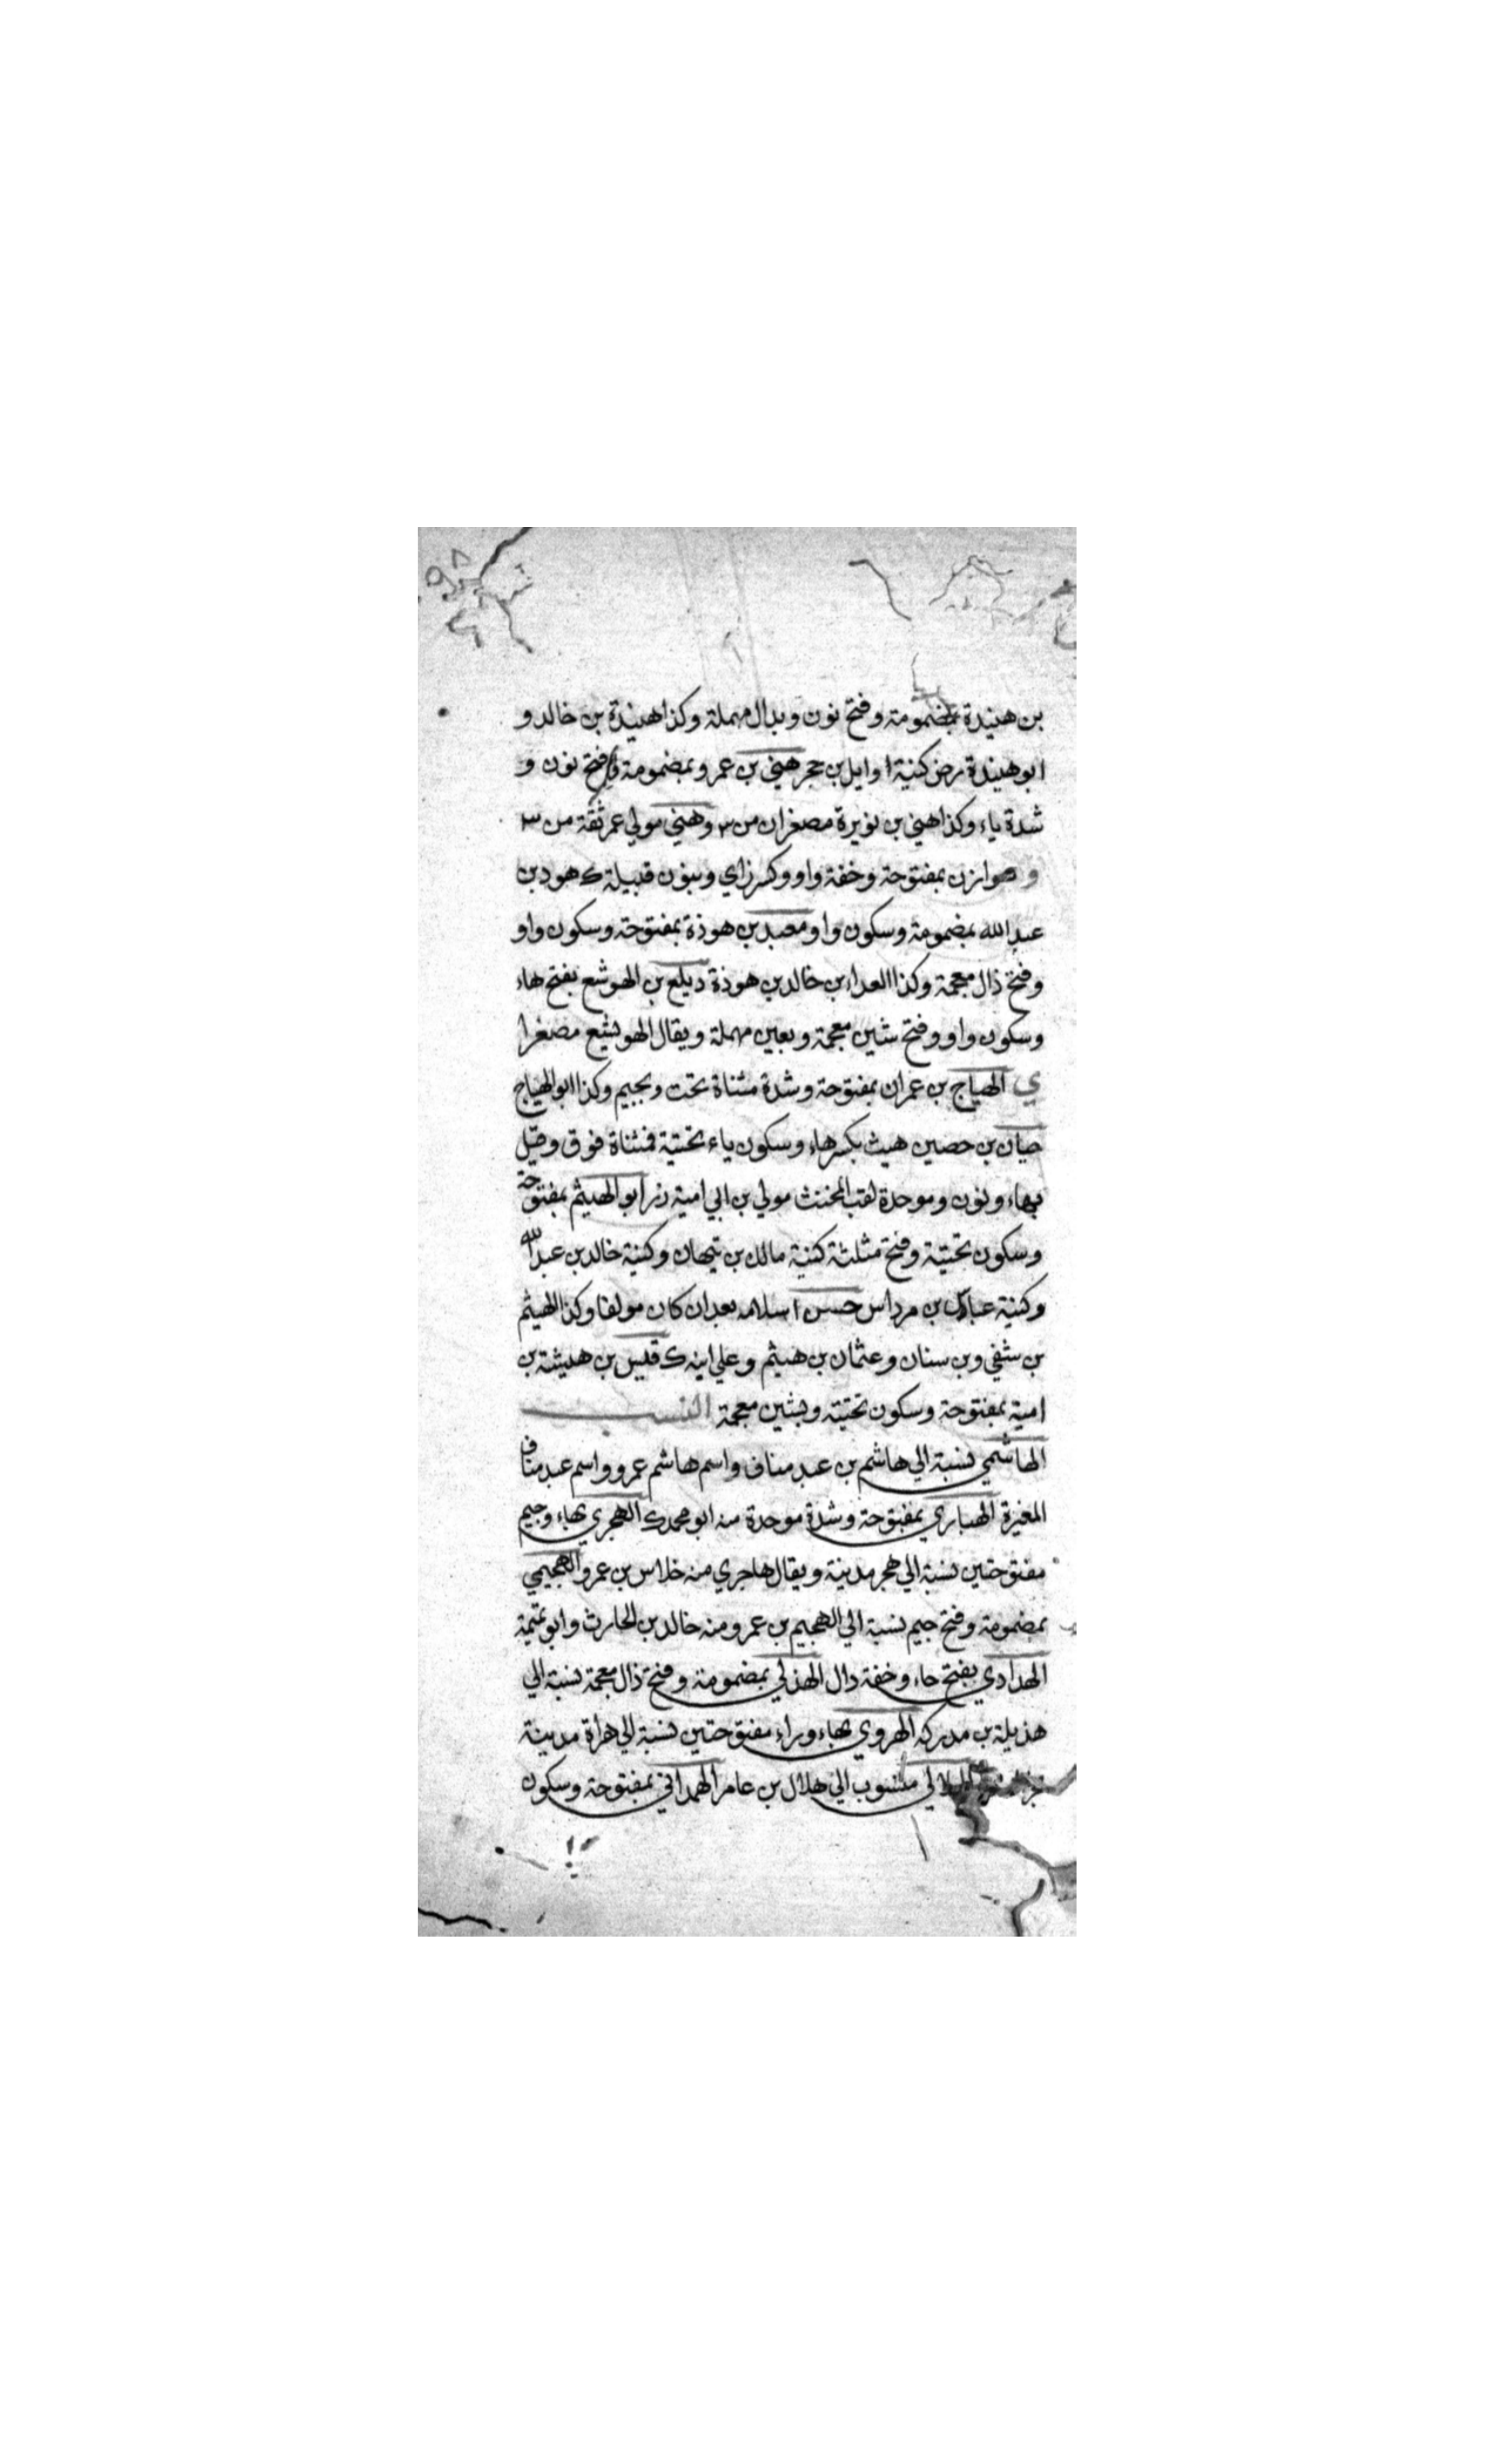 ٥٩٨
بن هنيدة بمضمومة وفتح نون وبدال مهملة وكذا هنيدة بن خالد و
ابو هنيدة رض كنية ا وايل بن حجر هني بن عمرو بمضمومة وفتح نون و
شدة ياء وكذا هني بن نويرة مصغران من ٣ وهني مولي عمر ثقة من ٣
و هوازن بمفتوحة وخفة واو وكسر زاي وبنون قبيلة ك هود بن
عبد الله بمضمومة وسكون واو معبد بن هوذة بمفتوحة وسكون واو
وفتح ذال معجمة وكذا العداء بن خالد بن هوذة ديلع بن الهوشع بفتح هاء
وسكون واو وفتح شين معجمة وبعين مهملة ويقال الهويشع مصغرا
ي الهياج بن عمران بمفتوحة وشدة مثناة تحت وبجيم وكذا ابو الهياج
حيان بن حصين هيث بكسر هاء وسكون ياء تحتية فمثناة فوق وقيل
بهاء ونون وموحدة لقب المخنث مولي بن ابي امية ابو الهيثم بمفتوحة
وسكون تحتية وفتح مثلثة كنية مالك بن تيهان وكنية خالد بن عبد الله
وكنية عباس بن مرداس حسن اسلامه بعد ان كان مولفا وكذا الهيثم
بن شفي وبن سنان وعثمان بن هيثم وعلي ابنه ك قيس بن هيشة بن
امية بمفتوحة وسكون تحتية وبشين معجمة النسب
الهاشمي نسبة الي هاشم بن عبد مناف واسم هاشم عمرو واسم عبد مناف
المغيرة الهباري بمفتوحة وشدة موحدة منه ابو محمد ك الهجري بهاء وجيم
مفتوحتين نسبة الي هجر مدينة ويقال هاجري منه خلاس بن عمرو الهجيمي
بمضمومة وفتح جيم نسبة الي الهجيم بن عمرو منه خالد بن الحارث وابو تميمة
الهدادي بفتح هاء وخفة دال الهذلي بمضمومة وفتح ذال معجمة نسبة الي
هذيلة بن مدركه الهروي بهاء وراء مفتوحتين نسبة الي هراة مدينة
الهلالي منسوب الي هلال بن عامر الهمداني بمفتوحة وسكون